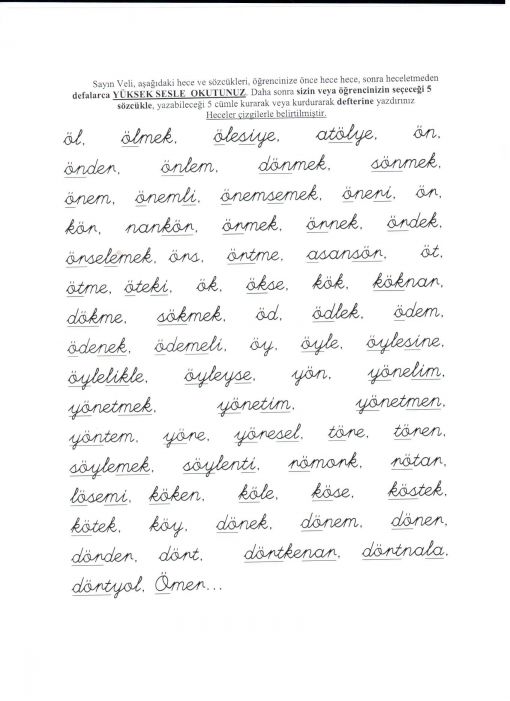 Sayın Veli, aşağıdaki hece ve sözcükleri, öğrencinize önce hece hece, sonra heceletmeden
defalarca YÜKSEK SESLE OKUTUNUZ. Daha sonra sizin veya öğrencinizin seçeceği 5
sözcükle, yazabileceği 5 cümle kurarak veya kurdurarak defterine yazdırınız
Heceler çizgilerle belirtilmiştir.
öl, ölmek, ölesiye, atölye, ön,
önden, önlem, dönmek, sönmek,
önem, önemli, önemsemek, öneri, ör,
kör, nankör, örmek, örnek, ördek,
örselemek, örs, örtme, asansör, öt,
ötme, öteki, ök, ökse, kök, köknar,
dökme, sökmek, öd, ödlek, ödem,
ödenek, ödemeli, öy, öyle, öylesine,
öylelikle, öyleyse, yön, yönelim,
yönetmek, yönetim, yönetmen,
yöntem, yöre, yöresel, töre, tören,
söylemek, söylenti, römork, rötar,
lösemi, köken, köle, köse, köstek,
kötek, köy, dönek, dönem, döner,
dörder, dört, dörtkenar, dörtnala,
dörtyol, Ömer...